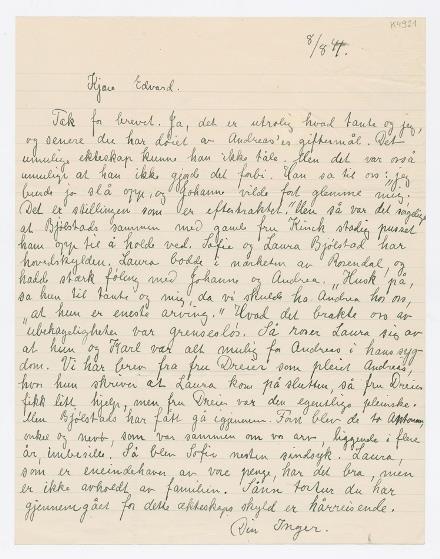 K4921
8/8 41.
Kjære Edvard.
Tak for brevet. Ja, det er utrolig hvad tante og jeg,
og senere du har døiet av Andreas'es giftermål. Det
umulige ekteskap kunne han ikke tåle. Men det var også
umulig at han ikke gjode det forbi. Han sa til os: "Jeg
burde jo slå opp, og Johanne vilde fort glemme mig.
Det er stillingen som er eftertraktet." Men så var det
at Bjølstads sammen med gamle fru Kinck stadig pusset
ham opp til å holde ved. Sofie og Laura Bjølstad har
hovedskylden. Laura bodde i nærheten av Rosendal, og
hadde stærk føling med Johanne og Andrea. "Husk på,
sa hun til tante og mig, da vi skulde ha Andrea hos os,
"at hun er eneste arving." Hvad det brakte oss av
ubehageligheter var grenseløs. Så roser Laura sig av
at hun og Karl var alt mulig for Andreas i hans syg-
dom. Vi har brev fra fru Dreier som pleiet Andreas,
hvor hun skriver at Laura kom på slutten, så fru Dreier
fikk litt hjelp, men fru Dreier var den egentlige pleierske.
Men Bjølstads har fått gå igjennem. Først blev de to
onkel og nevø, som var sammen om vor arv, liggende i flere
år, imbesile. Så blev Sofie nesten sindssyk. Laura,
som er eneindehaver av vore penge, har det bra, men
er ikke avholdt av familien. Sånn tortur du har
gjennemgået for dette ekteskaps skyld er hårreisende.
Din Inger.